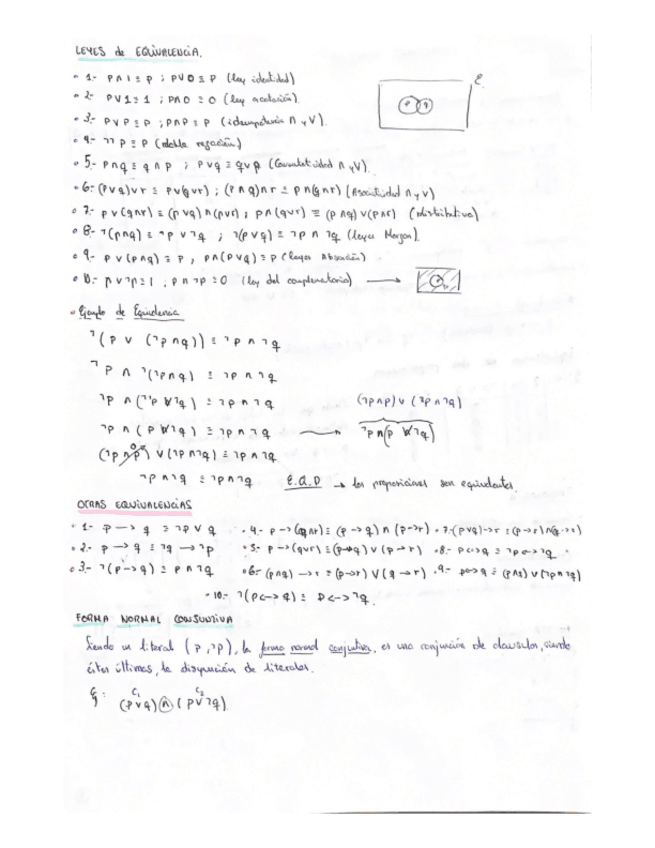 LEYES de EQUIVALENCIA.
1.- p∧1≡p ; p∨0≡p (ley identidad)
E
2.- p∨1≡1 ; p∧0≡0 (ley acotación)
p q
3.- p∨p≡p ; p∧p≡p (idempotencia ∧ y ∨).
4.- ¬¬p≡p (doble negación)
5.- p∧q≡q∧p ; p∨q≡q∨p (Conmutatividad ∧ y ∨).
6.- (p∨q)∨r≡p∨(q∨r) ; (p∧q)∧r≡p∧(q∧r) (Asociatividad ∧ y ∨)
7.- p∨(q∧r)≡(p∨q)∧(p∨r) ; p∧(q∨r)≡(p∧q)∨(p∧r) (distributiva)
8.- ¬(p∧q)≡¬p∨¬q ; ¬(p∨q)≡¬p∧¬q (leyes Morgan).
9.- p∨(p∧q)≡p , p∧(p∨q)≡p (leyes Absorción)
10.- p∨¬p≡1 , p∧¬p≡0 (ley del complementario) →
Ejemplo de Equivalencia
¬(p∨(¬p∧q))≡¬p∧¬q
¬p∧¬(¬p∧q)≡¬p∧¬q
¬p∧(¬¬p∨¬q)≡¬p∧¬q (¬p∧p)∨(¬p∧¬q)
¬p∧(p∨¬q)≡¬p∧¬q → ¬p∧(p∨¬q)
(¬p∧p)0∨(¬p∧¬q)≡¬p∧¬q
¬p∧¬q≡¬p∧¬q E.Q.D → las proposiciones son equivalentes
OTRAS EQUIVALENCIAS
1.- p→q≡¬p∨q 4.- p→(q∧r)≡(p→q)∧(p→r) 7.- (p∨q)→r≡(p→r)∧(q→r)
2.- p→q≡¬q→¬p 5.- p→(q∨r)≡(p→q)∨(p→r) 8.- p↔q≡¬p↔¬q
3.- ¬(p→q)≡p∧¬q 6.- (p∧q)→r≡(p→r)∨(q→r) 9.- p↔q≡(p∧q)∨(¬p∧¬q)
10.- ¬(p↔q)≡p↔¬q
FORMA NORMAL CONJUNTIVA
Siendo un literal (p,¬p), la forma normal conjuntiva, es una conjunción de clausulas, siendo
éstas últimas, la disyunción de literales.
C1 C2
Ej: (p∨q)∧(p∨¬q)